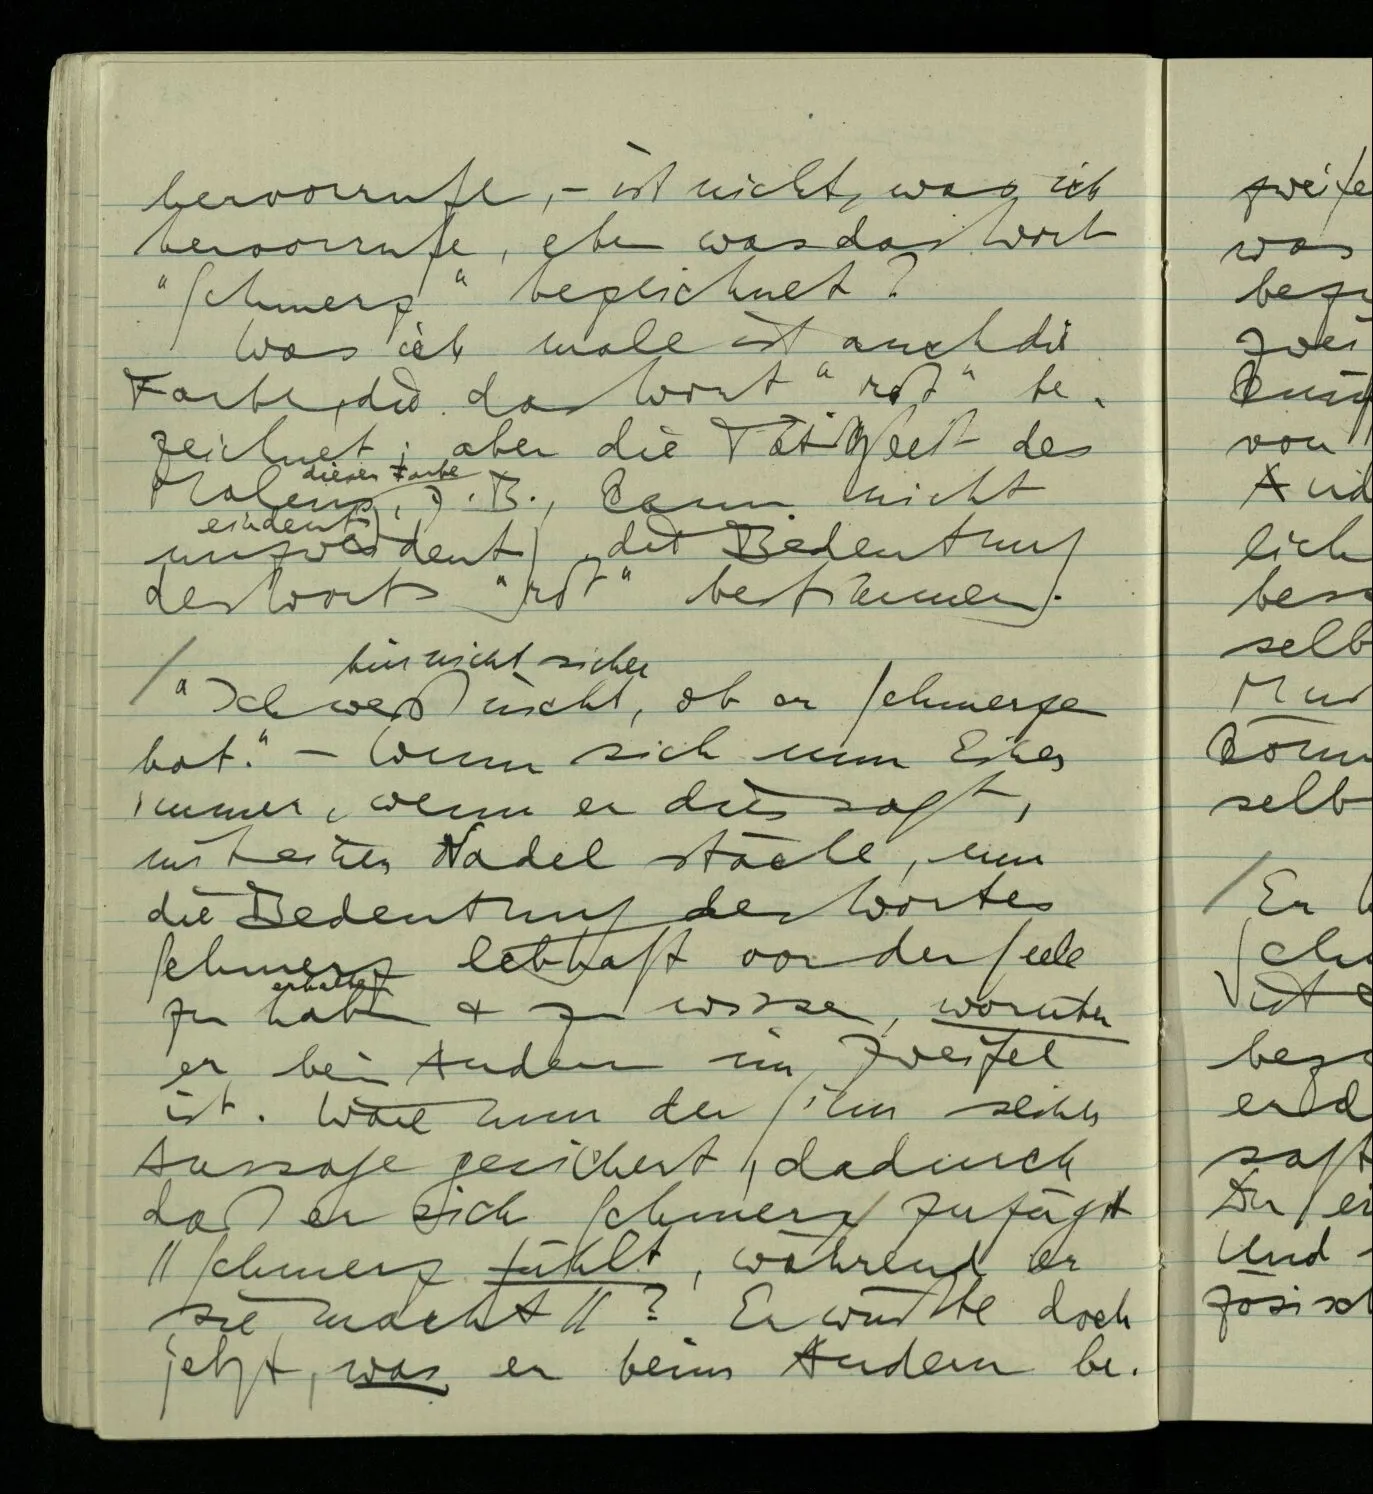 hervorrufe, – ist nicht, was ich
hervorrufe, eben was das Wort
"Schmerz" bezeichnet?
Was ich male ist auch die
Farbe, die das Wort "rot" be-
zeichnet; aber die Tätigkeit des
dieser Farbe
Malens, z.B., kann nicht
eindeutig
unzweideutig die Bedeutung
des Worts "rot" bestimmen.
bin nicht sicher
/ "Ich weiß nicht, ob er Schmerzen
hat." – Wenn sich nun Einer
immer, wenn er dies sagt,
mit einer Nadel stäche, um
die Bedeutung des Wortes
Schmerz lebhaft vor der Seele
erhalten
zu haben & zu wissen, worüber
er beim Andern im Zweifel
ist. Wäre nun der Sinn seiner
Aussage gesichert, dadurch
daß er sich Schmerz zufügt
// Schmerz fühlt, während er
sie macht // ? Er wüßte doch
jetzt, was er beim Andern be-
zweife
was
bez
zwei
von
And
lich
bes
selb
Mus
könn
selb
/ Er
Sch
ist
bez
er d
sagt
Du
Und
zösisch